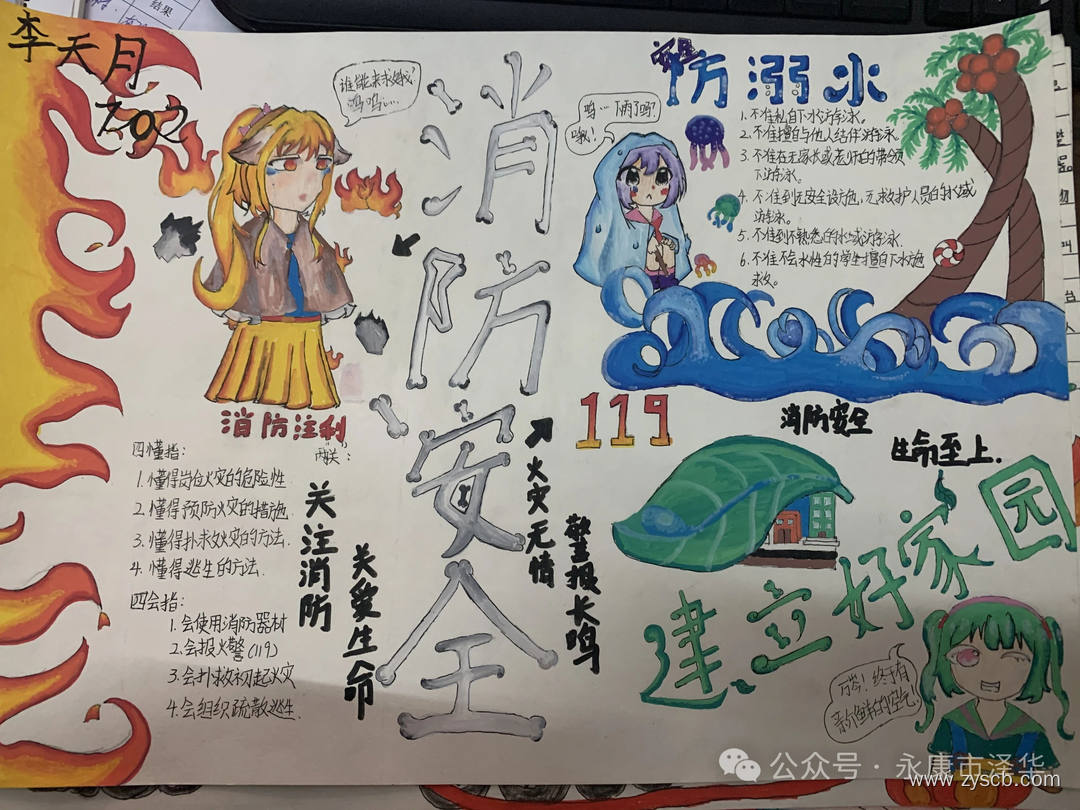 结果
李天月
702
谁能来求救我
呜呜……
消防安全
防溺水
呜…下雨了吗?
哦!
1.不准私自下水游泳。
2.不准擅自与他人结伴游泳。
3.不准在无家长或老师的带领
下游泳。
4.不准到无安全设施,无救护人员的水域
游泳。
5.不准到不熟悉的水域游泳.
6.不准不会水性的学生擅自下水施
救。
消防注利
四懂指:
1.懂得岗位火灾的危险性
2.懂得预防火灾的措施.
3.懂得扑救火灾的方法.
4.懂得逃生的方法.
四会指:
1.会使用消防器材
2.会报火警(119)
3.会扑救初起火灾
4.会组织疏散逃生.
关注消防
关爱生命
火灾无情
警报长鸣
119
消防安全
生命至上.
建立好家园
万岁!终于有
新鲜的空气!
公众号·永康市泽华
www.zyscb.com